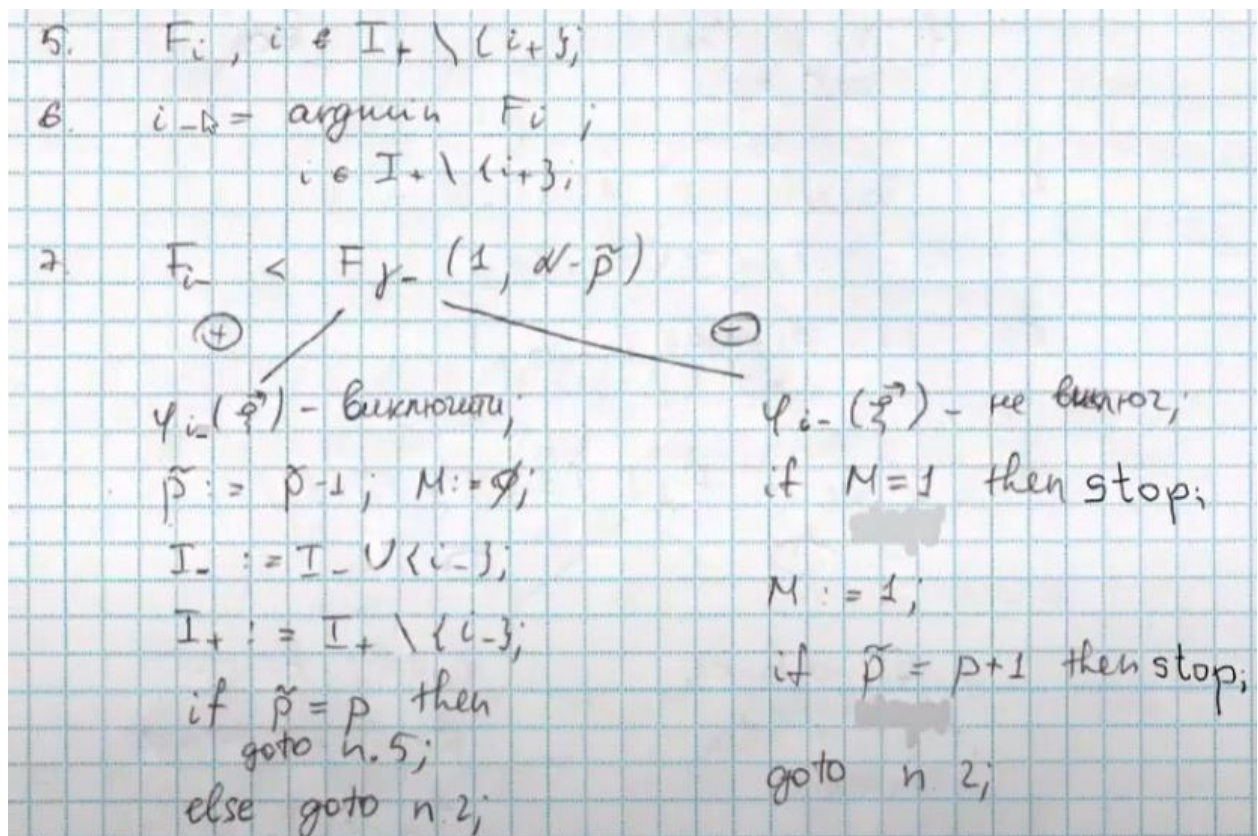 5. F_i, i ∈ I_+ \ {i_+};
6. i_- = argmin F_i;
i ∈ I_+ \ {i_+};
7. F_{i_-} < F_{γ_-} (1, N-p̃)
⊕ ⊖
φ_{i_-}(ξ⃗) - виключити;
p̃ := p̃-1; M:=∅;
I_- := I_- ∪ {i_-};
I_+ := I_+ \ {i_-};
if p̃ = p then
goto п.5;
else goto п 2;
φ_{i_-}(ξ⃗) - не виключ;
if M=1 then stop;
M := 1;
if p̃ = p+1 then stop;
goto п 2;